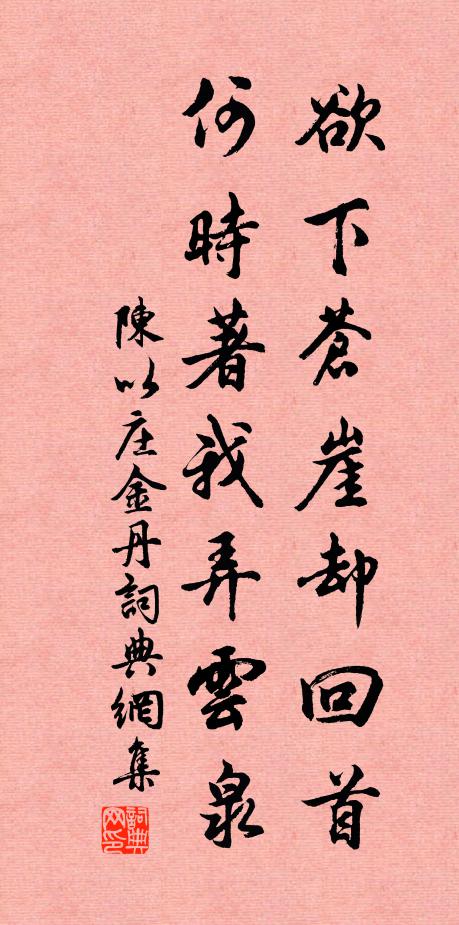 欲下蒼崖却回首
何時著我弄雲泉
陳以庄金丹詞典網集
詞典网印